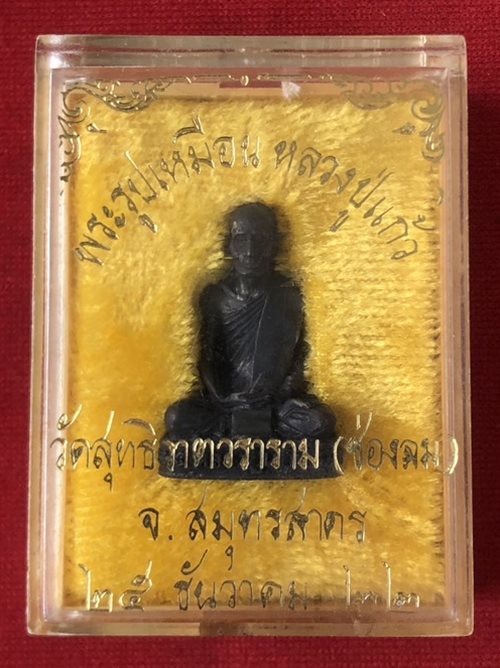 พระรูปเหมือน หลวงปู่แก้ว
วัดสุทธิวาตวราราม (ช่องลม)
จ. สมุทรสาคร
๒๕ ธันวาคม ๒๒